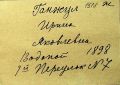 Ганжул 1898 ж.
Ирина
Яковлевна
Водопой 1898
7й Переулок N 7